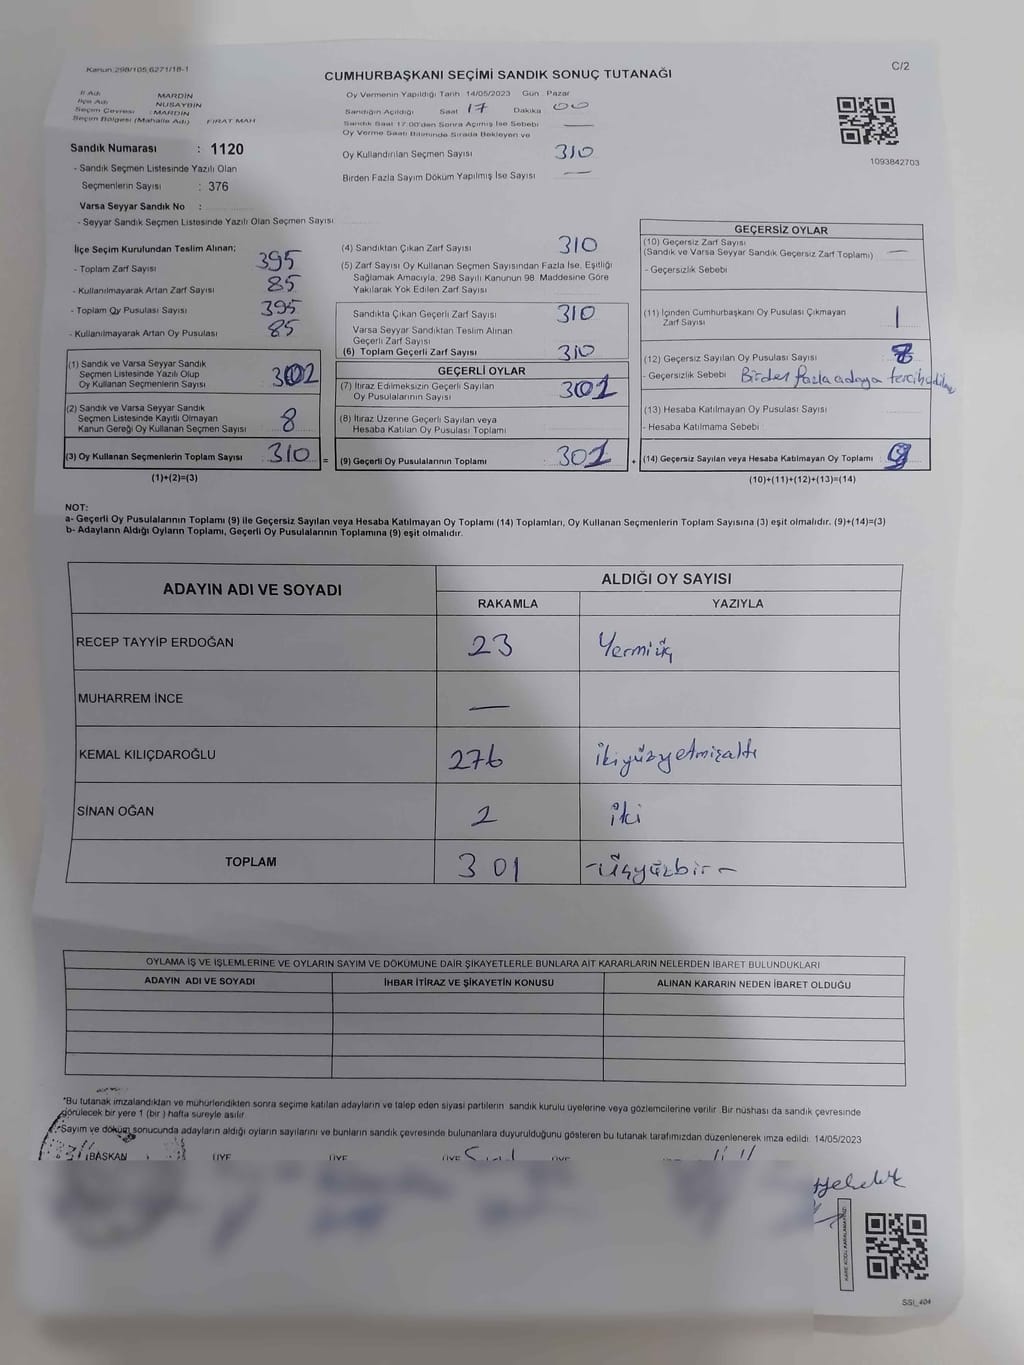 Kanun:298/105,6271/18-1
C/2
CUMHURBAŞKANI SEÇİMİ SANDIK SONUÇ TUTANAĞI
İl Adı MARDİN
İlçe Adı NUSAYBİN
Seçim Çevresi : MARDİN
Seçim Bölgesi (Mahalle Adı) FIRAT MAH
Oy Vermenin Yapıldığı Tarih 14/05/2023 Gün Pazar
Sandığın Açıldığı Saat 17 Dakika 00
Sandık Saat 17.00'den Sonra Açmış İse Sebebi —
Oy Verme Saati Bitiminde Sırada Bekleyen ve
Oy Kullandırılan Seçmen Sayısı 310
Birden Fazla Sayım Döküm Yapılmış İse Sayısı —
1093842703
Sandık Numarası : 1120
- Sandık Seçmen Listesinde Yazılı Olan
Seçmenlerin Sayısı : 376
Varsa Seyyar Sandık No :
- Seyyar Sandık Seçmen Listesinde Yazılı Olan Seçmen Sayısı
İlçe Seçim Kurulundan Teslim Alınan;
- Toplam Zarf Sayısı 395
- Kullanılmayarak Artan Zarf Sayısı 85
- Toplam Oy Pusulası Sayısı 395
- Kullanılmayarak Artan Oy Pusulası 85
(1) Sandık ve Varsa Seyyar Sandık
Seçmen Listesinde Yazılı Olup
Oy Kullanan Seçmenlerin Sayısı 302
(2) Sandık ve Varsa Seyyar Sandık
Seçmen Listesinde Kayıtlı Olmayan
Kanun Gereği Oy Kullanan Seçmen Sayısı 8
(3) Oy Kullanan Seçmenlerin Toplam Sayısı 310 =
(1)+(2)=(3)
(4) Sandıktan Çıkan Zarf Sayısı 310
(5) Zarf Sayısı Oy Kullanan Seçmen Sayısından Fazla İse, Eşitliği
Sağlamak Amacıyla, 298 Sayılı Kanunun 98. Maddesine Göre
Yakılarak Yok Edilen Zarf Sayısı
Sandıkta Çıkan Geçerli Zarf Sayısı 310
Varsa Seyyar Sandıktan Teslim Alınan
Geçerli Zarf Sayısı
(6) Toplam Geçerli Zarf Sayısı 310
GEÇERLİ OYLAR
(7) İtiraz Edilmeksizin Geçerli Sayılan
Oy Pusulalarının Sayısı 301
(8) İtiraz Üzerine Geçerli Sayılan veya
Hesaba Katılan Oy Pusulası Toplamı
(9) Geçerli Oy Pusulalarının Toplamı 301 +
GEÇERSİZ OYLAR
(10) Geçersiz Zarf Sayısı
(Sandık ve Varsa Seyyar Sandık Geçersiz Zarf Toplamı) —
- Geçersizlik Sebebi
(11) İçinden Cumhurbaşkanı Oy Pusulası Çıkmayan
Zarf Sayısı 1
(12) Geçersiz Sayılan Oy Pusulası Sayısı 8
- Geçersizlik Sebebi Birden fazla adaya tercih
(13) Hesaba Katılmayan Oy Pusulası Sayısı
- Hesaba Katılmama Sebebi
(14) Geçersiz Sayılan veya Hesaba Katılmayan Oy Toplamı : 9
(10)+(11)+(12)+(13)=(14)
NOT:
a- Geçerli Oy Pusulalarının Toplamı (9) ile Geçersiz Sayılan veya Hesaba Katılmayan Oy Toplamı (14) Toplamları, Oy Kullanan Seçmenlerin Toplam Sayısına (3) eşit olmalıdır. (9)+(14)=(3)
b- Adayların Aldığı Oyların Toplamı, Geçerli Oy Pusulalarının Toplamına (9) eşit olmalıdır.
ADAYIN ADI VE SOYADI ALDIĞI OY SAYISI
RAKAMLA YAZIYLA
RECEP TAYYİP ERDOĞAN 23 Yermiüç
MUHARREM İNCE —
KEMAL KILIÇDAROĞLU 276 ikiyüzyetmişaltı
SİNAN OĞAN 2 iki
TOPLAM 301 -üçyüzbir-
OYLAMA İŞ VE İŞLEMLERİNE VE OYLARIN SAYIM VE DÖKÜMÜNE DAİR ŞİKAYETLERLE BUNLARA AİT KARARLARIN NELERDEN İBARET BULUNDUKLARI
ADAYIN ADI VE SOYADI İHBAR İTİRAZ VE ŞİKAYETİN KONUSU ALINAN KARARIN NEDEN İBARET OLDUĞU
*Bu tutanak imzalandıktan ve mühürlendikten sonra seçime katılan adayların ve talep eden siyasi partilerin sandık kurulu üyelerine veya gözlemcilerine verilir. Bir nüshası da sandık çevresinde
görülecek bir yere 1 (bir) hafta süreyle asılır.
*Sayım ve döküm sonucunda adayların aldığı oyların sayılarını ve bunların sandık çevresinde bulunanlara duyurulduğunu gösteren bu tutanak tarafımızdan düzenlenerek imza edildi. 14/05/2023
BAŞKAN ÜYE ÜYE ÜYE ÜYE
SSI_404